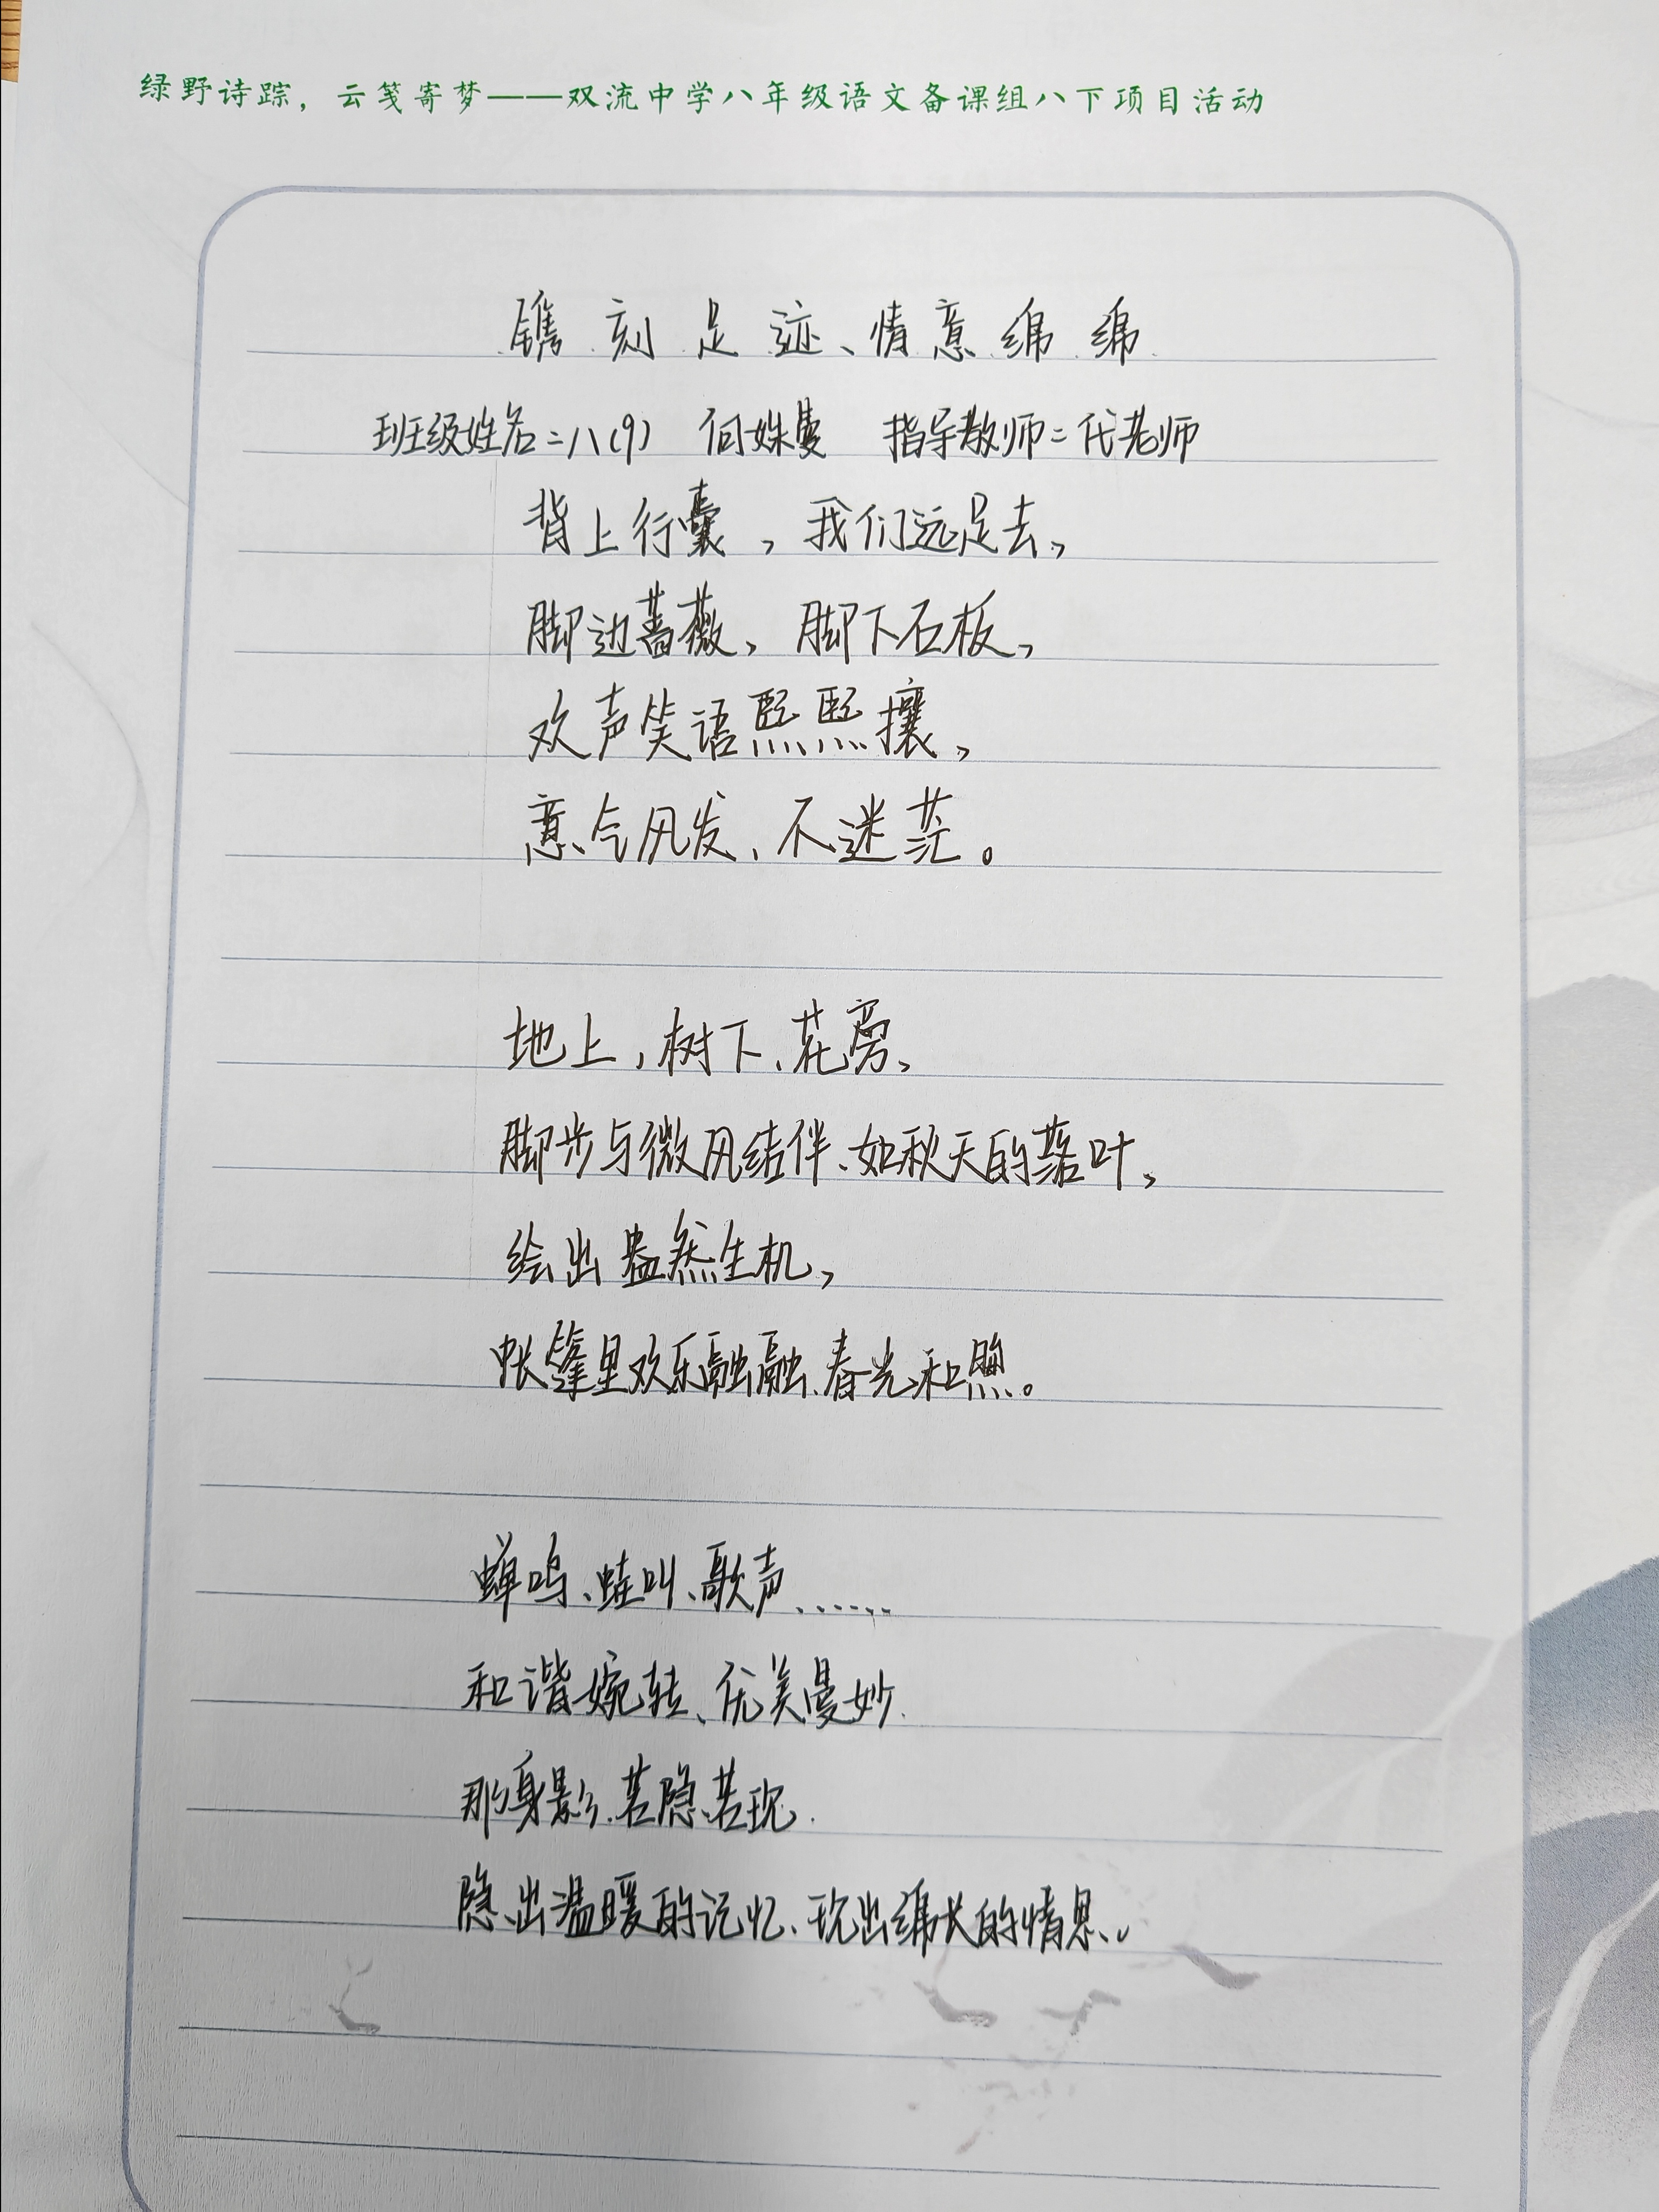 绿野诗踪，云笺寄梦——双流中学八年级语文备课组八下项目活动
镌刻足迹、情意绵绵
班级姓名：八(9) 何姝曼 指导教师：代老师
背上行囊，我们远足去，
脚边蔷薇，脚下石板，
欢声笑语熙熙攘，
意气风发，不迷茫。
地上，树下，花旁，
脚步与微风结伴、如秋天的落叶，
绘出盎然生机，
帐篷里欢乐融融、春光和煦。
蝉鸣、蛙叫、歌声……
和谐婉转、优美曼妙.
那身影.若隐若现.
隐出温暖的记忆、现出绵长的情思。